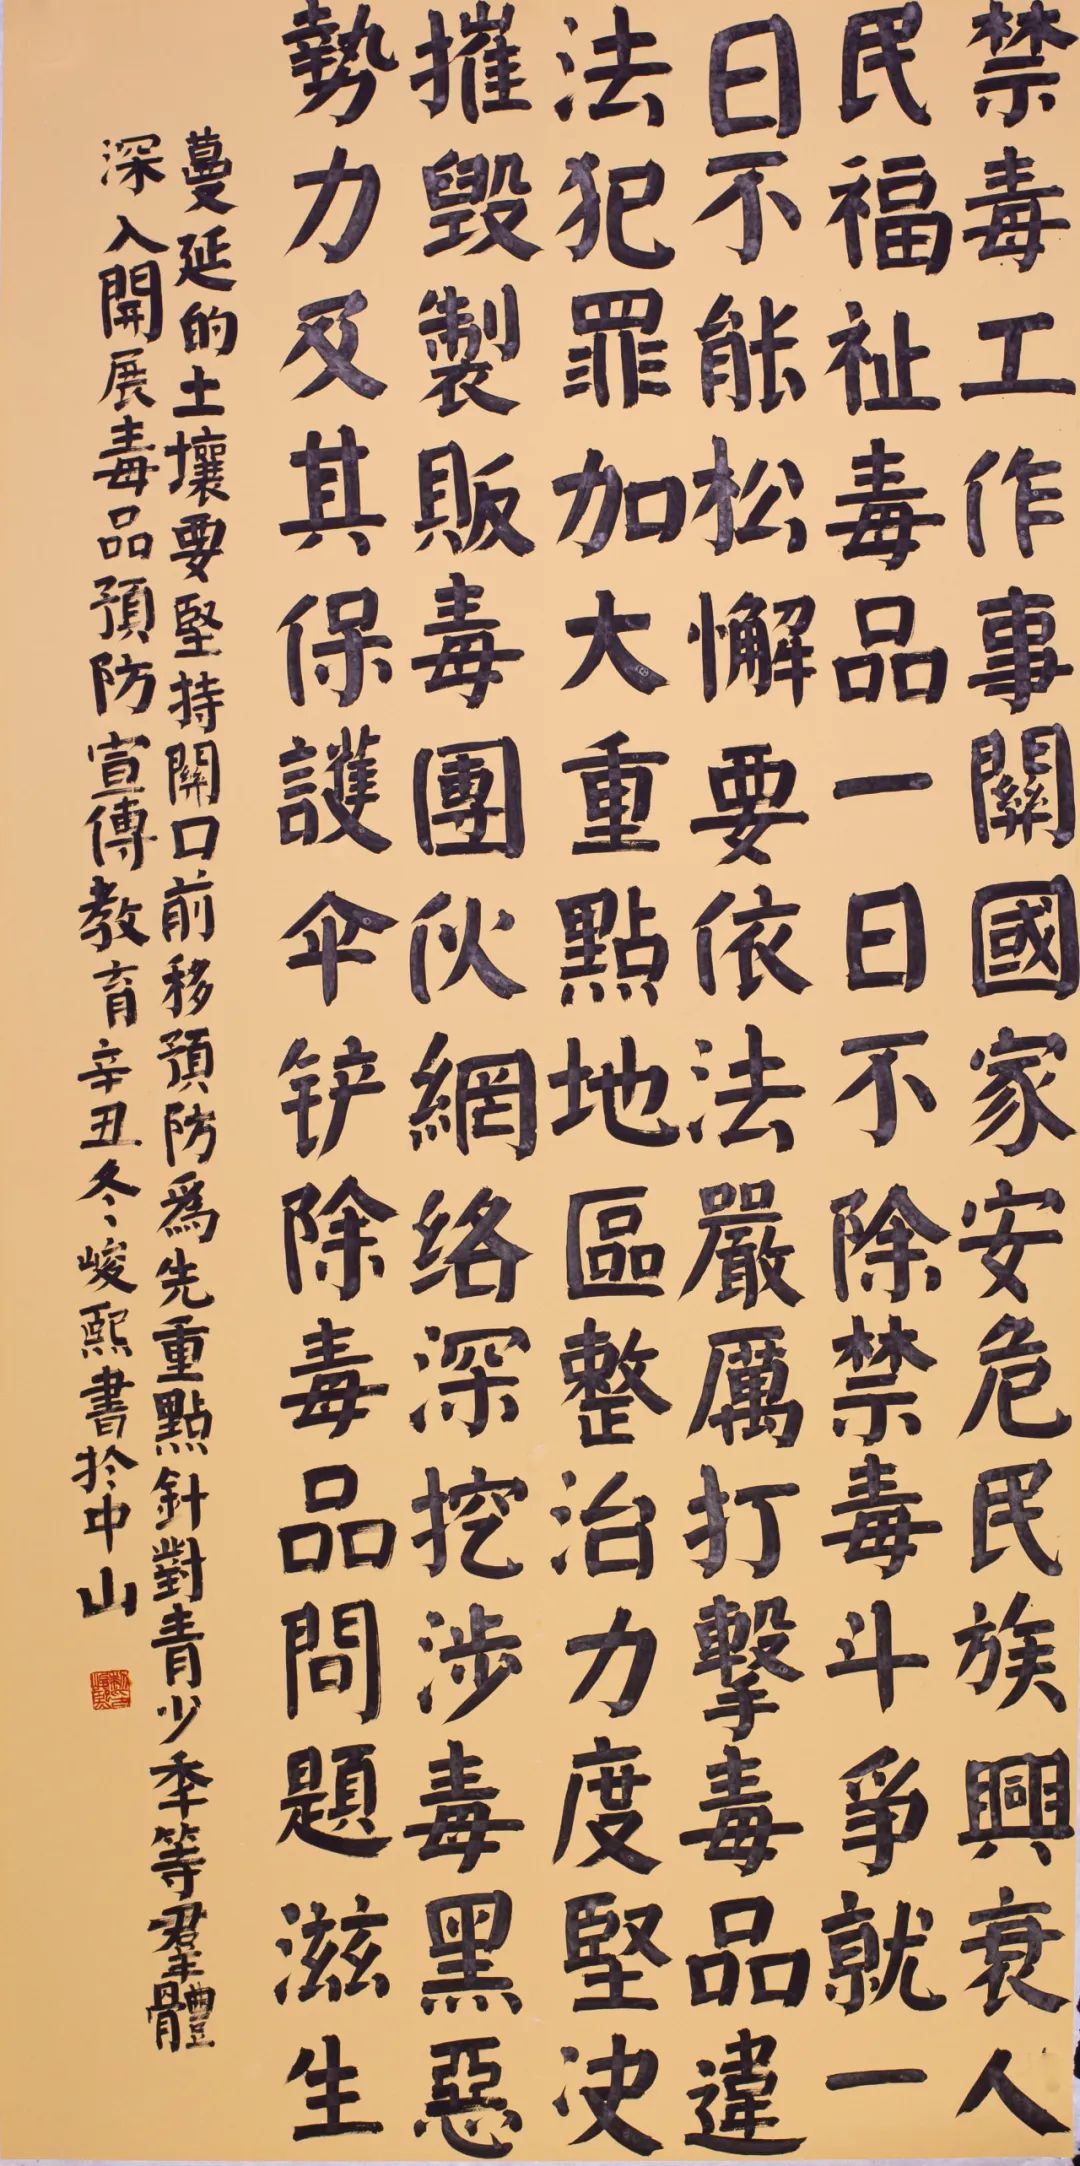 禁毒工作事關國家安危民族興衰人
民福祉毒品一日不除禁毒斗爭就一
日不能松懈要依法嚴厲打擊毒品違
法犯罪加大重點地區整治力度堅决
摧毀製販毒團伙網络深挖涉毒黑惡
勢力及其保護伞铲除毒品問題滋生
蔓延的土壤要堅持關口前移預防爲先重點針對青少秊等羣體
深入開展毒品預防宣傳教育辛丑冬峻熙書於中山